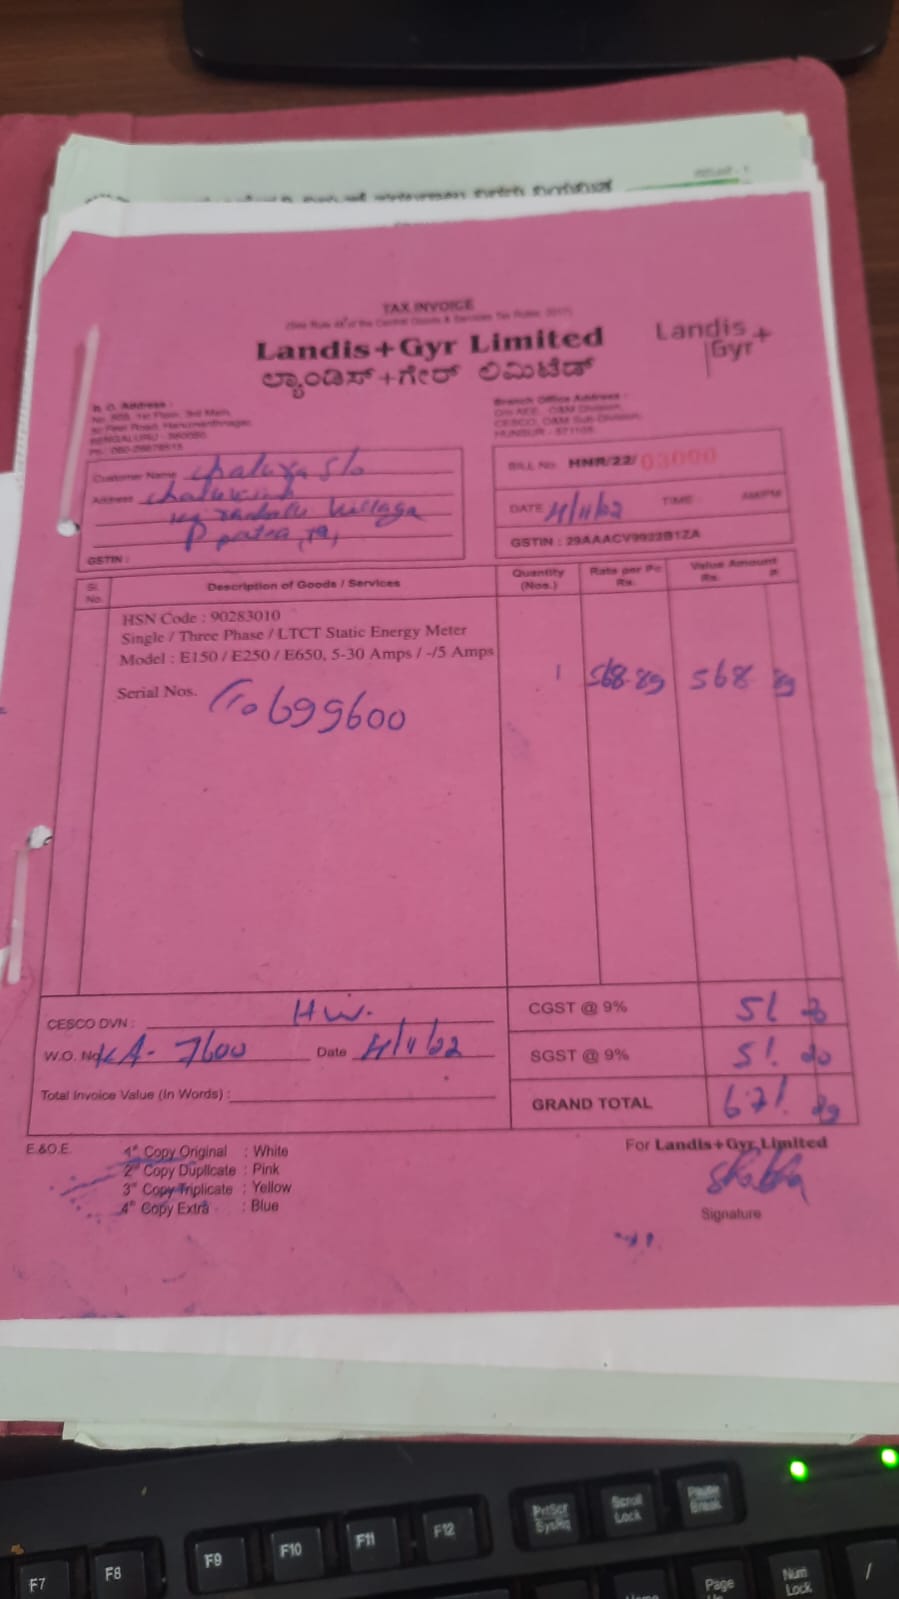 TAX INVOICE
(See Rule 48 of the Central Goods & Services Tax Rules, 2017)
Landis+Gyr Limited
ಲ್ಯಾಂಡಿಸ್+ಗೇರ್ ಲಿಮಿಟೆಡ್
Landis+
Gyr
R. O. Address :
1st Floor, 3rd Main,
Hanumanthnagar,
BENGALURU - 560050
Branch Office Address :
O/o AEE, O&M Division,
CESCO, O&M Sub-Division,
HUNSUR - 571105
Customer Name chaluva S/o
Address
village
GSTIN :
BILL No. HNR/22/ 03090
DATE 4/11/22 TIME AM/PM
GSTIN : 29AAACV9922B1ZA
Sl. No.
Description of Goods / Services
Quantity (Nos.)
Rate per Pc Rs.
Value Amount Rs. P.
HSN Code : 90283010
Single / Three Phase / LTCT Static Energy Meter
Model : E150 / E250 / E650, 5-30 Amps / -/5 Amps
1 568.89 568 89
Serial Nos. 699600
CESCO DVN : H.W.
W.O. No. KA- 7600 Date 4/11/22
Total Invoice Value (In Words) :
CGST @ 9% 51 20
SGST @ 9% 51. 20
GRAND TOTAL 671. 29
E.&O.E.
1st Copy Original : White
2nd Copy Duplicate : Pink
3rd Copy Triplicate : Yellow
4th Copy Extra : Blue
For Landis+Gyr Limited
Signature
F7
F8
F9
F10
F11
F12
PrtScr
SysRq
Scroll
Lock
Pause
Break
Page
Num
Lock
/